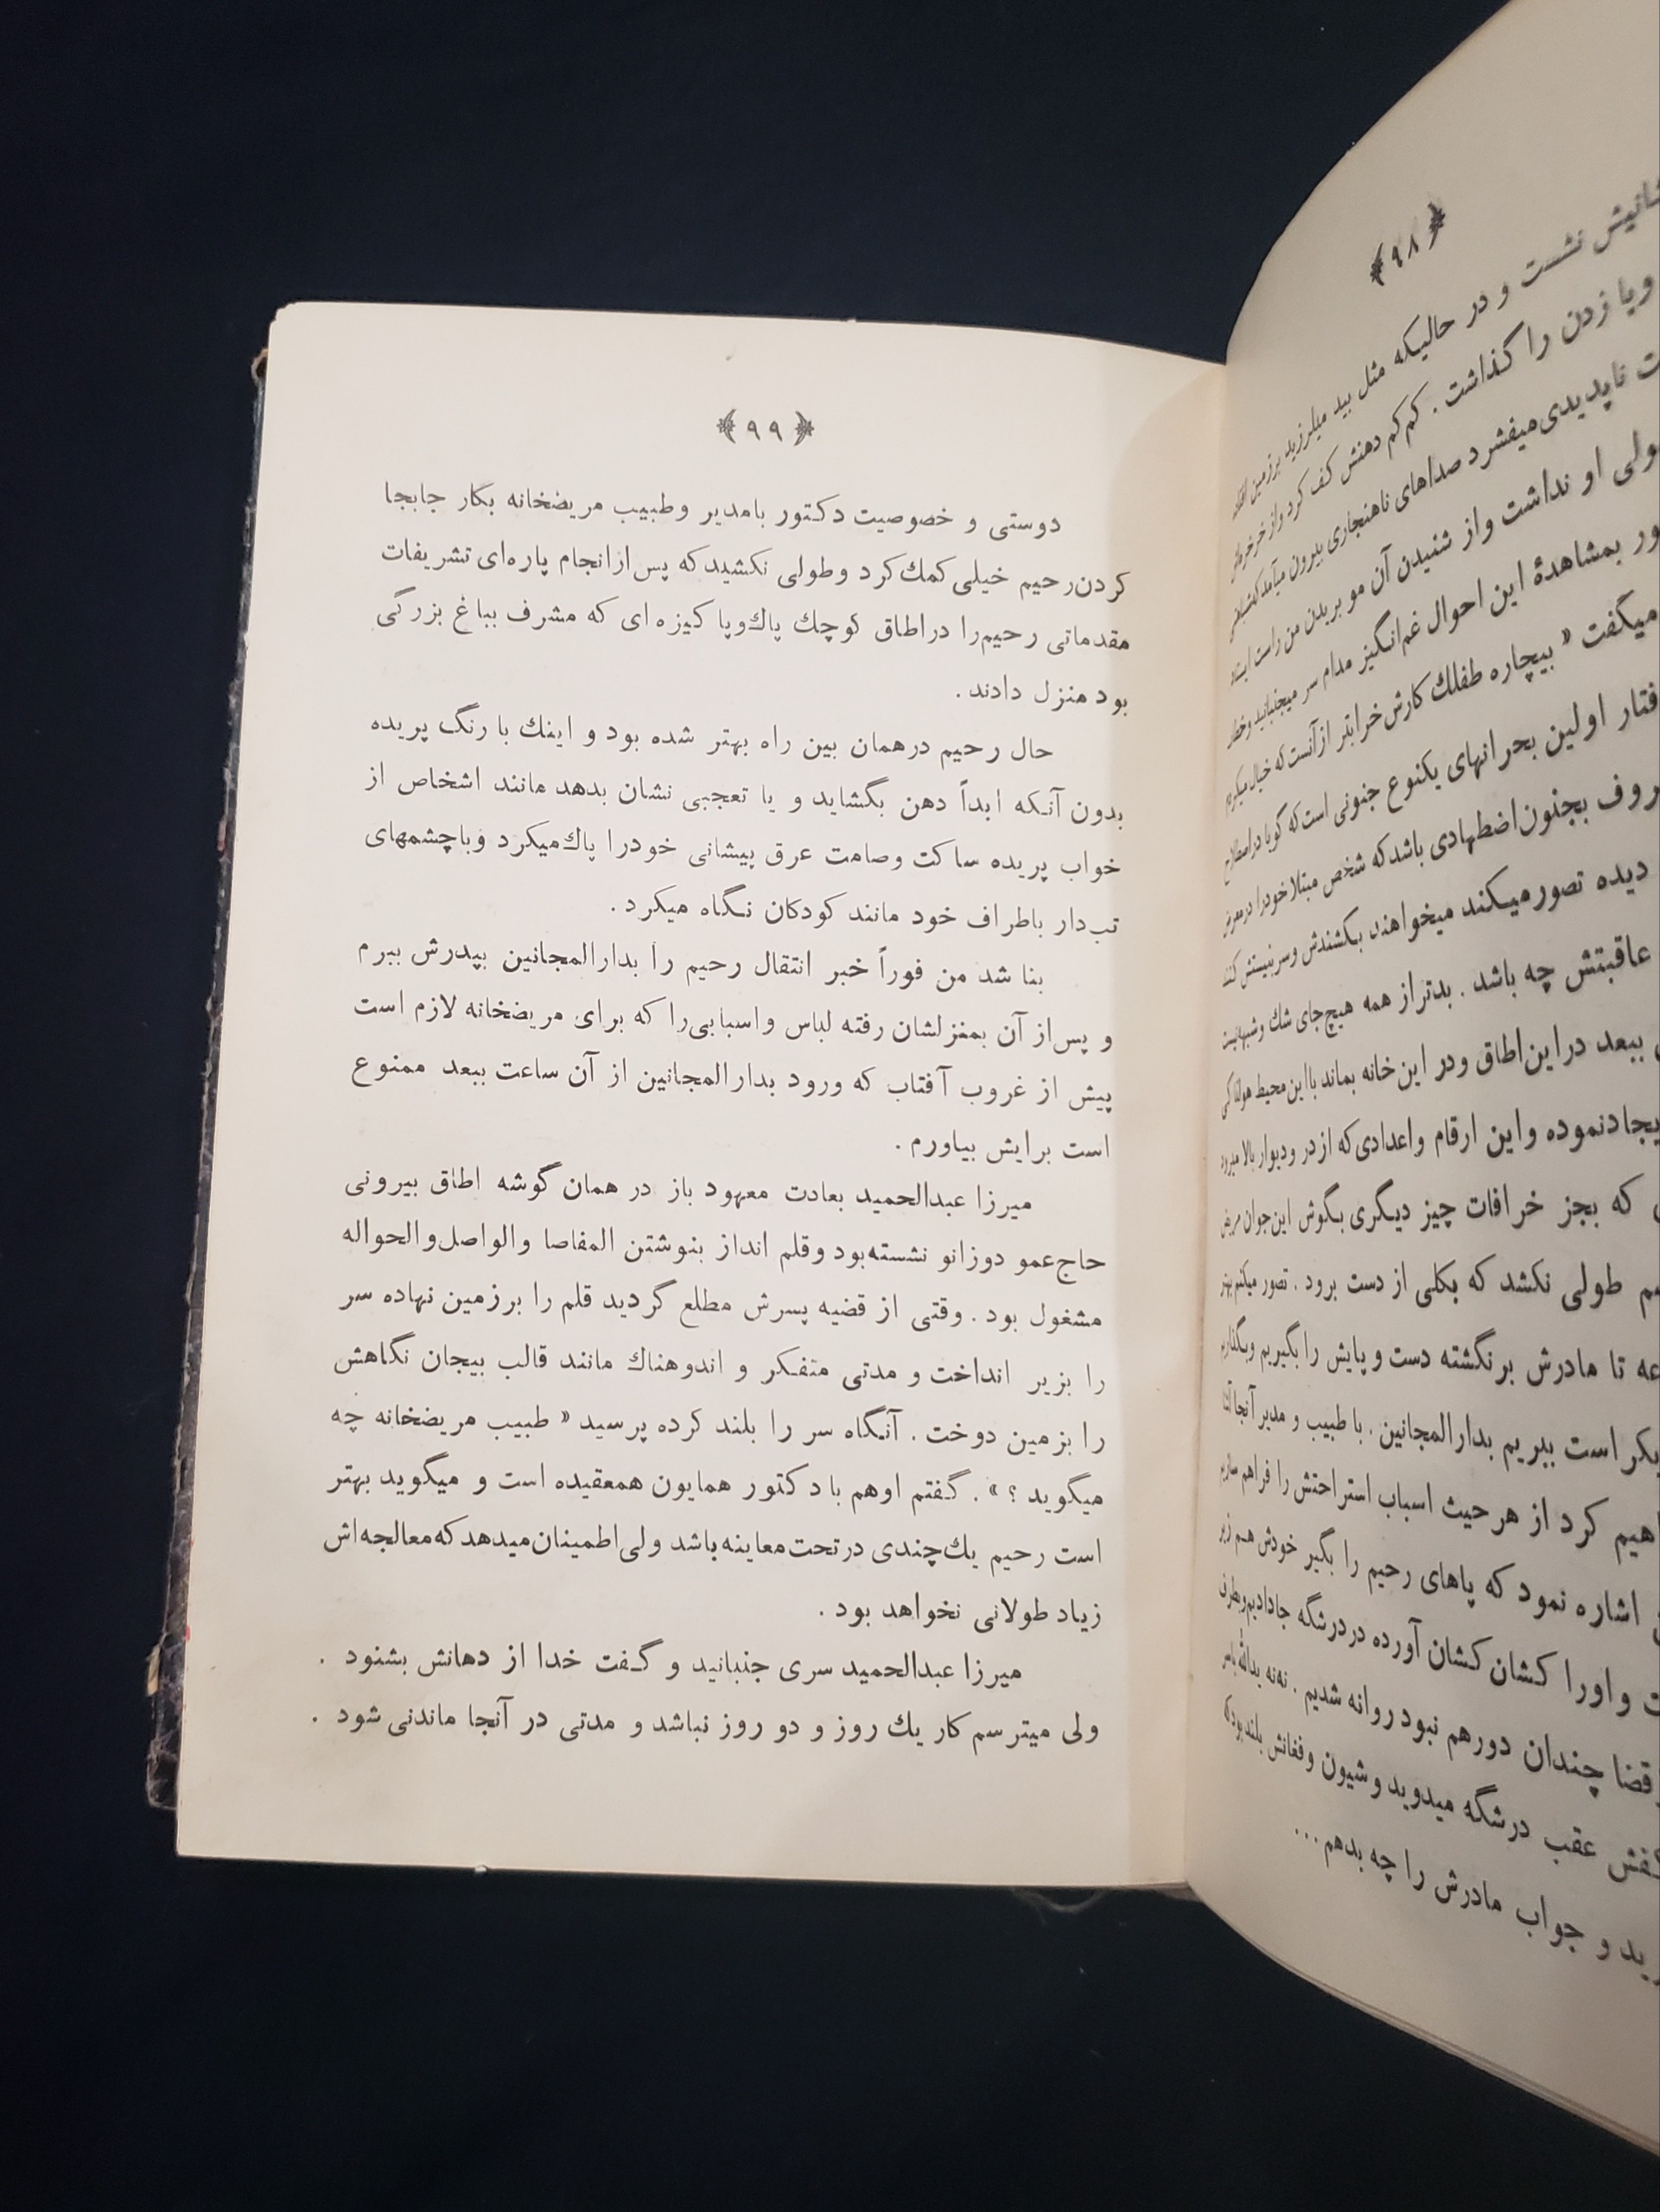 ﴿٩٨﴾
نشست و در حالیکه مثل بید میلرزید برزمین
وپا زدن را گذاشت . کم کم دهنش کف کرد واز
ناپدیدی میفشرد صداهای ناهنجاری بیرون میآمد
ولی او نداشت واز شنیدن آن مو بربدن من راست
بمشاهدهٔ این احوال غم‌انگیز مدام سر میجنبانید
میگفت « بیچاره طفلك کارش خرابتر ازآنست که خیال میکردم
اولین بحرانهای یکنوع جنونی است که گویا دراصطلاح
بجنون اضطهادی باشد که شخص مبتلا خودرا درمعرض
دیده تصورمیکند میخواهند بکشندش وسربنیستش کنند
عاقبتش چه باشد . بدتراز همه هیچ‌جای شك وشبهه نیست
ببعد دراین‌اطاق ودر این خانه بماند بااین محیط
نموده واین ارقام واعدادی که ازدر ودیوار بالا میرود
که بجز خرافات چیز دیگری بگوش این‌جوان مریض
طولی نکشد که بکلی از دست برود . تصور میکنم بهتر
تا مادرش برنگشته دست وپایش را بگیریم وبگذاریم
است ببریم بدارالمجانین . با طبیب و مدیر آنجا
کرد از هر حیث اسباب استراحتش را فراهم سازیم
اشاره نمود که پاهای رحیم را بگیر خودش هم زیر
واورا کشان کشان آورده در درشگه جادادیم وبطرف
قضا چندان دورهم نبود روانه شدیم . ننه یدالله
عقب درشگه میدوید و شیون و فغانش بلندبود که
و جواب مادرش را چه بدهم . . .
﴿٩٩﴾
دوستی و خصوصیت دکتور بامدیر وطبیب مریضخانه بکار جابجا
کردن‌رحیم خیلی کمك کرد وطولی نکشید که پس‌ازانجام پاره‌ای تشریفات
مقدماتی رحیم‌را دراطاق کوچك پاك‌وپا کیزه‌ای که مشرف بباغ بزرگی
بود منزل دادند .
حال رحیم درهمان بین راه بهتر شده بود و اینك با رنگ پریده
بدون آنکه ابداً دهن بگشاید و یا تعجبی نشان بدهد مانند اشخاص از
خواب پریده ساکت وصامت عرق پیشانی خودرا پاك‌میکرد وباچشمهای
تب‌دار باطراف خود مانند کودکان نگاه میکرد .
بنا شد من فوراً خبر انتقال رحیم را بدارالمجانین بپدرش ببرم
و پس‌از آن بمنزلشان رفته لباس واسبابی‌را که برای مریضخانه لازم است
پیش از غروب آفتاب که ورود بدارالمجانین از آن ساعت ببعد ممنوع
است برایش بیاورم .
میرزا عبدالحمید بعادت معهود باز در همان گوشه اطاق بیرونی
حاج‌عمو دوزانو نشسته‌بود وقلم انداز بنوشتن المفاصا والواصل‌والحواله
مشغول بود . وقتی از قضیه پسرش مطلع گردید قلم را برزمین نهاده سر
را بزیر انداخت و مدتی متفکر و اندوهناك مانند قالب بیجان نگاهش
را بزمین دوخت . آنگاه سر را بلند کرده پرسید « طبیب مریضخانه چه
میگوید ؟ » . گفتم اوهم با دکتور همایون همعقیده است و میگوید بهتر
است رحیم یك‌چندی درتحت‌معاینه‌باشد ولی‌اطمینان‌میدهد که‌معالجه‌اش
زیاد طولانی نخواهد بود .
میرزا عبدالحمید سری جنبانید و گفت خدا از دهانش بشنود .
ولی میترسم کار یك روز و دو روز نباشد و مدتی در آنجا ماندنی شود .